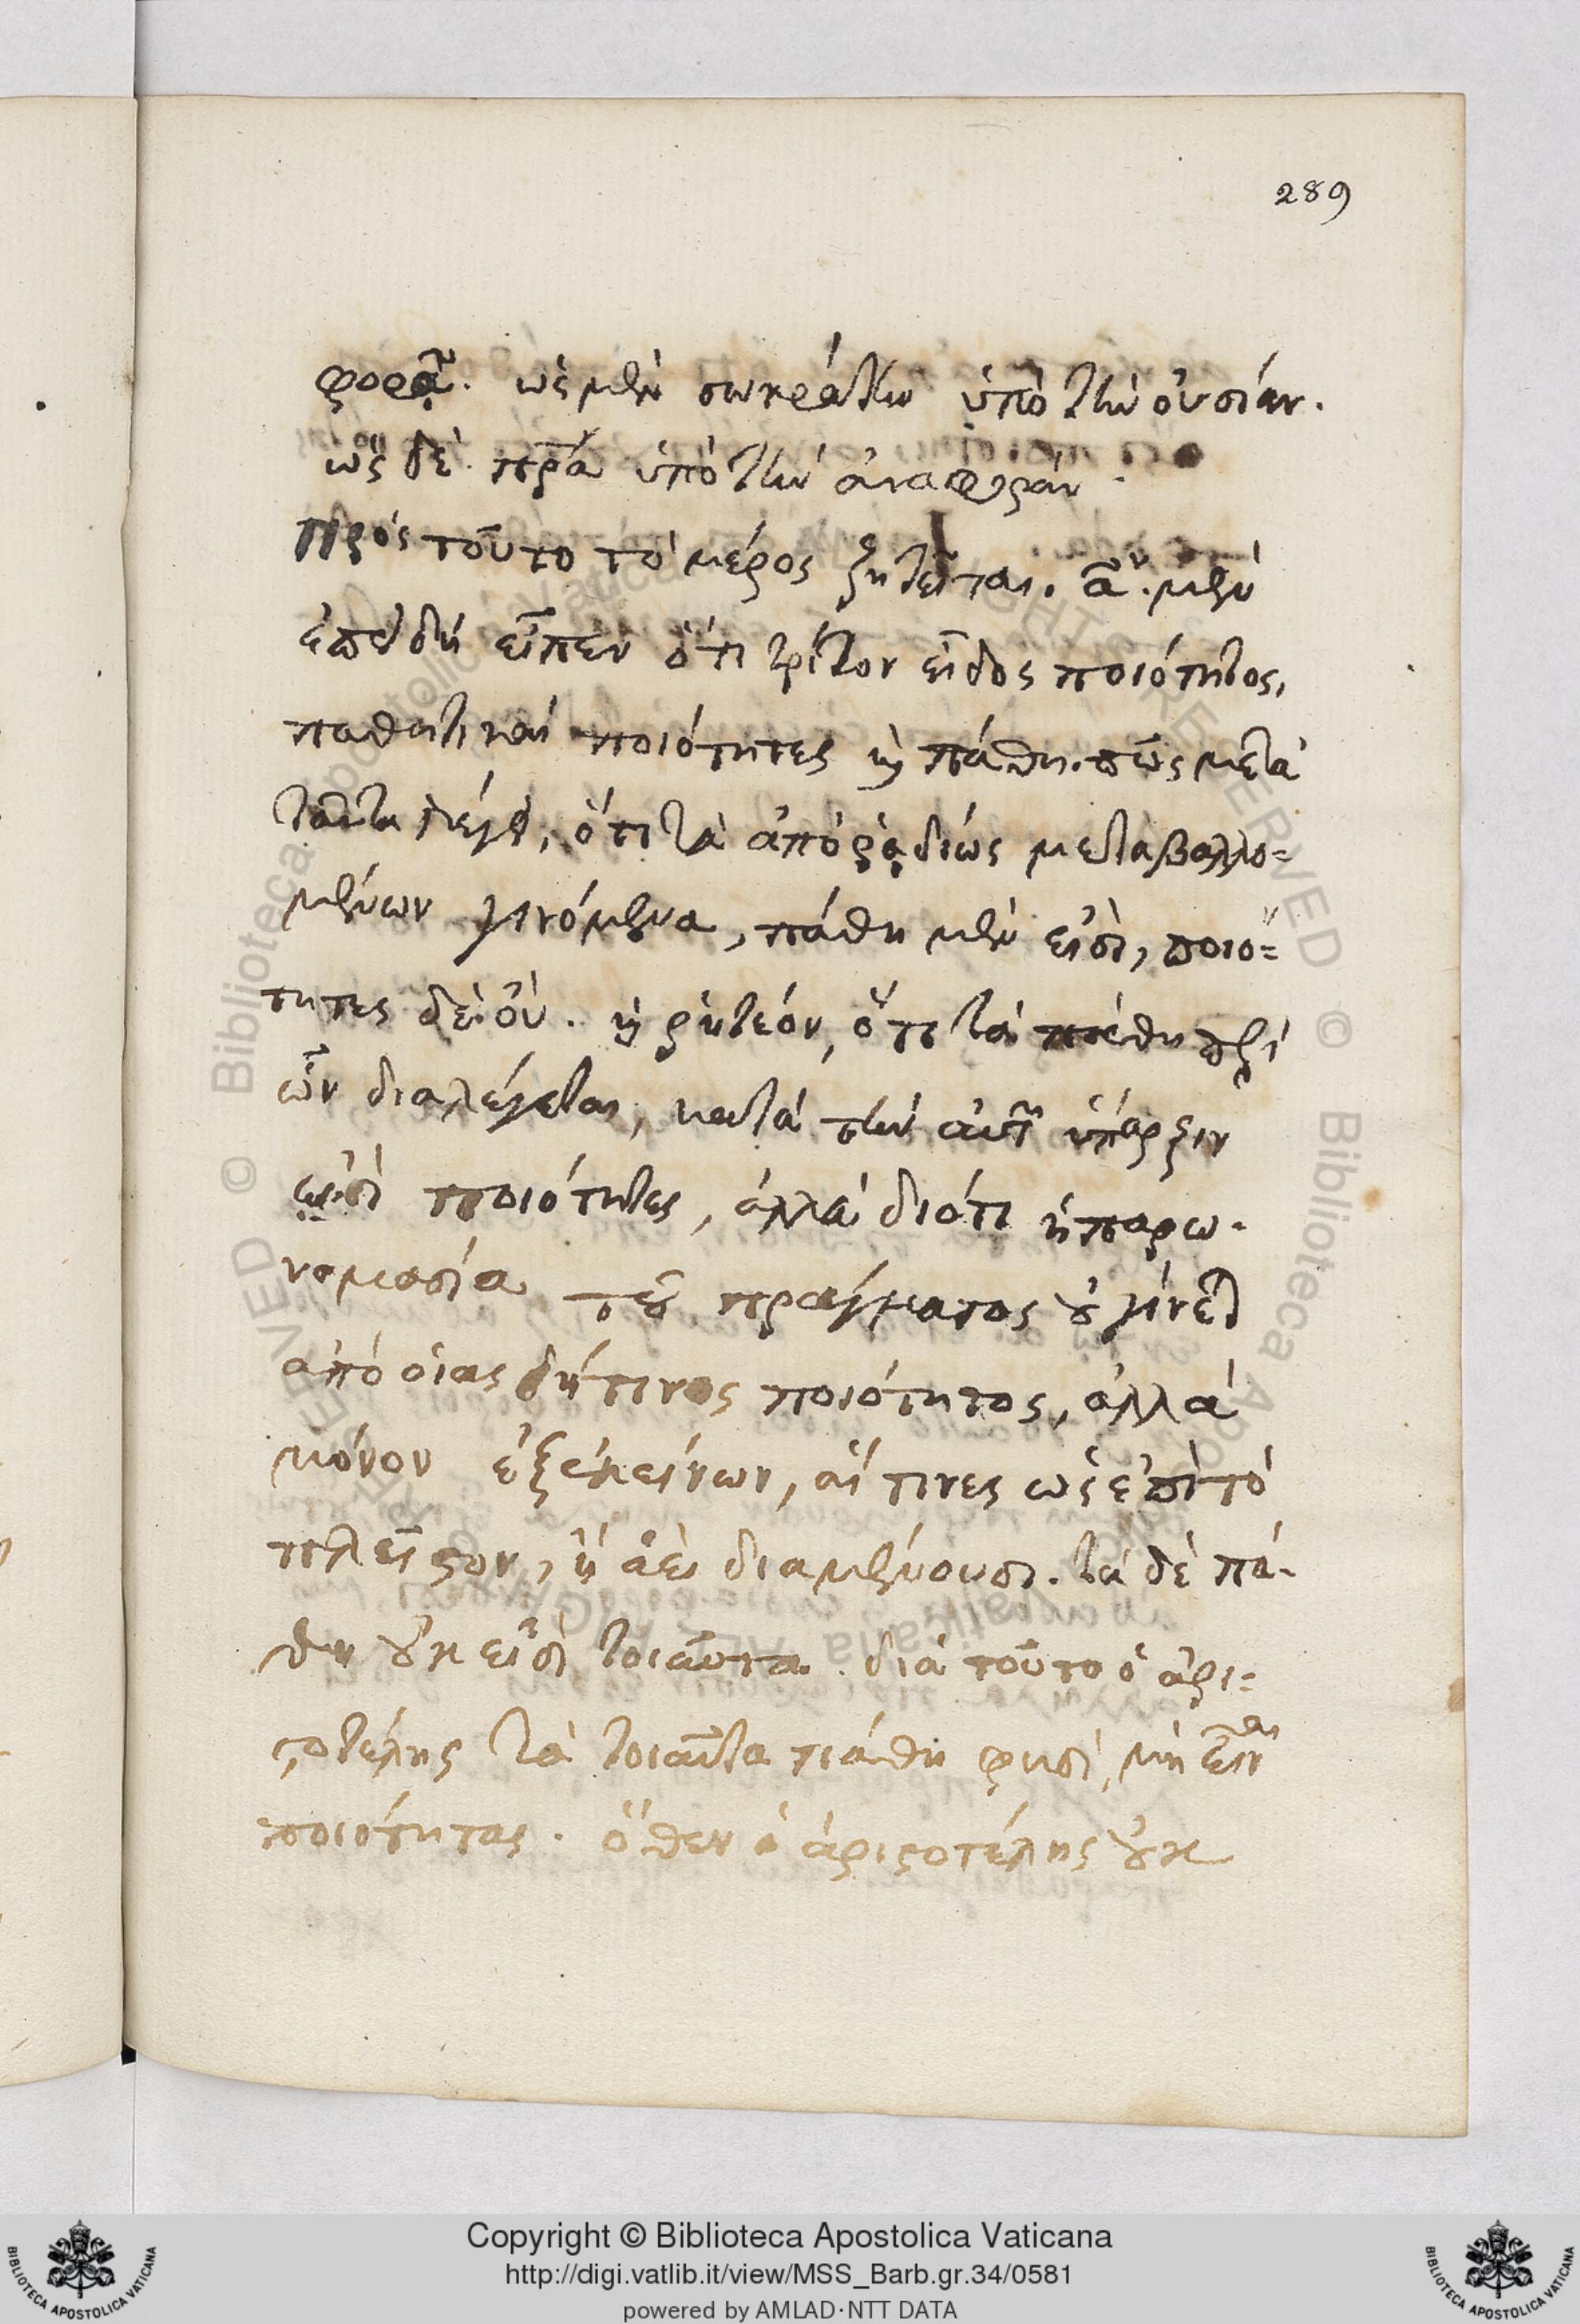 289
φορᾷ. ὡς μὲν σωκράτην ὑπὸ τὴν οὐσίαν.
ὡς δὲ π̅ρ̅α ὑπὸ τὴν ἀναφοράν.
Πρὸς τοῦτο τὸ μέρος ζητεῖται. α̅ον. μὲν
ἐπειδὴ εἶπεν ὅτι τρίτον εἶδος ποιότητος,
παθητικαὶ ποιότητες καὶ πάθη. πῶς μετὰ
ταῦτα λέγει, ὅτι τὰ ἀπὸ ῥᾳδίως μεταβαλλο=
μένων γινόμενα, πάθη μὲν εἰσὶ, ποιό=
τητες δὲ οὔ. καὶ ῥητέον, ὅτι τὰ πάθη περὶ
ὧν διαλέγεται, κατὰ τὴν αὐτῶν ὕπαρξιν
εἰσὶ ποιότητες, ἀλλὰ διότι ἡ παρω-
νομασία τοῦ πράγματος οὐ γίνεται
ἀπὸ οἵας δή τινος ποιότητος, ἀλλὰ
μόνον ἐξ ἐκείνων, αἵ τινες ὡς ἐπὶ τὸ
πλεῖστον, ἢ ἀεὶ διαμένουσι. τὰ δὲ πά-
θη οὐκ εἰσὶ τοιαῦτα. διὰ τοῦτο ὁ ἀρι=
στοτέλης τὰ τοιαῦτα πάθη φησὶ, μὴ εἶναι
ποιότητας. ὅθεν ὁ ἀριστοτέλης οὐκ
Copyright © Biblioteca Apostolica Vaticana
http://digi.vatlib.it/view/MSS_Barb.gr.34/0581
powered by AMLAD·NTT DATA